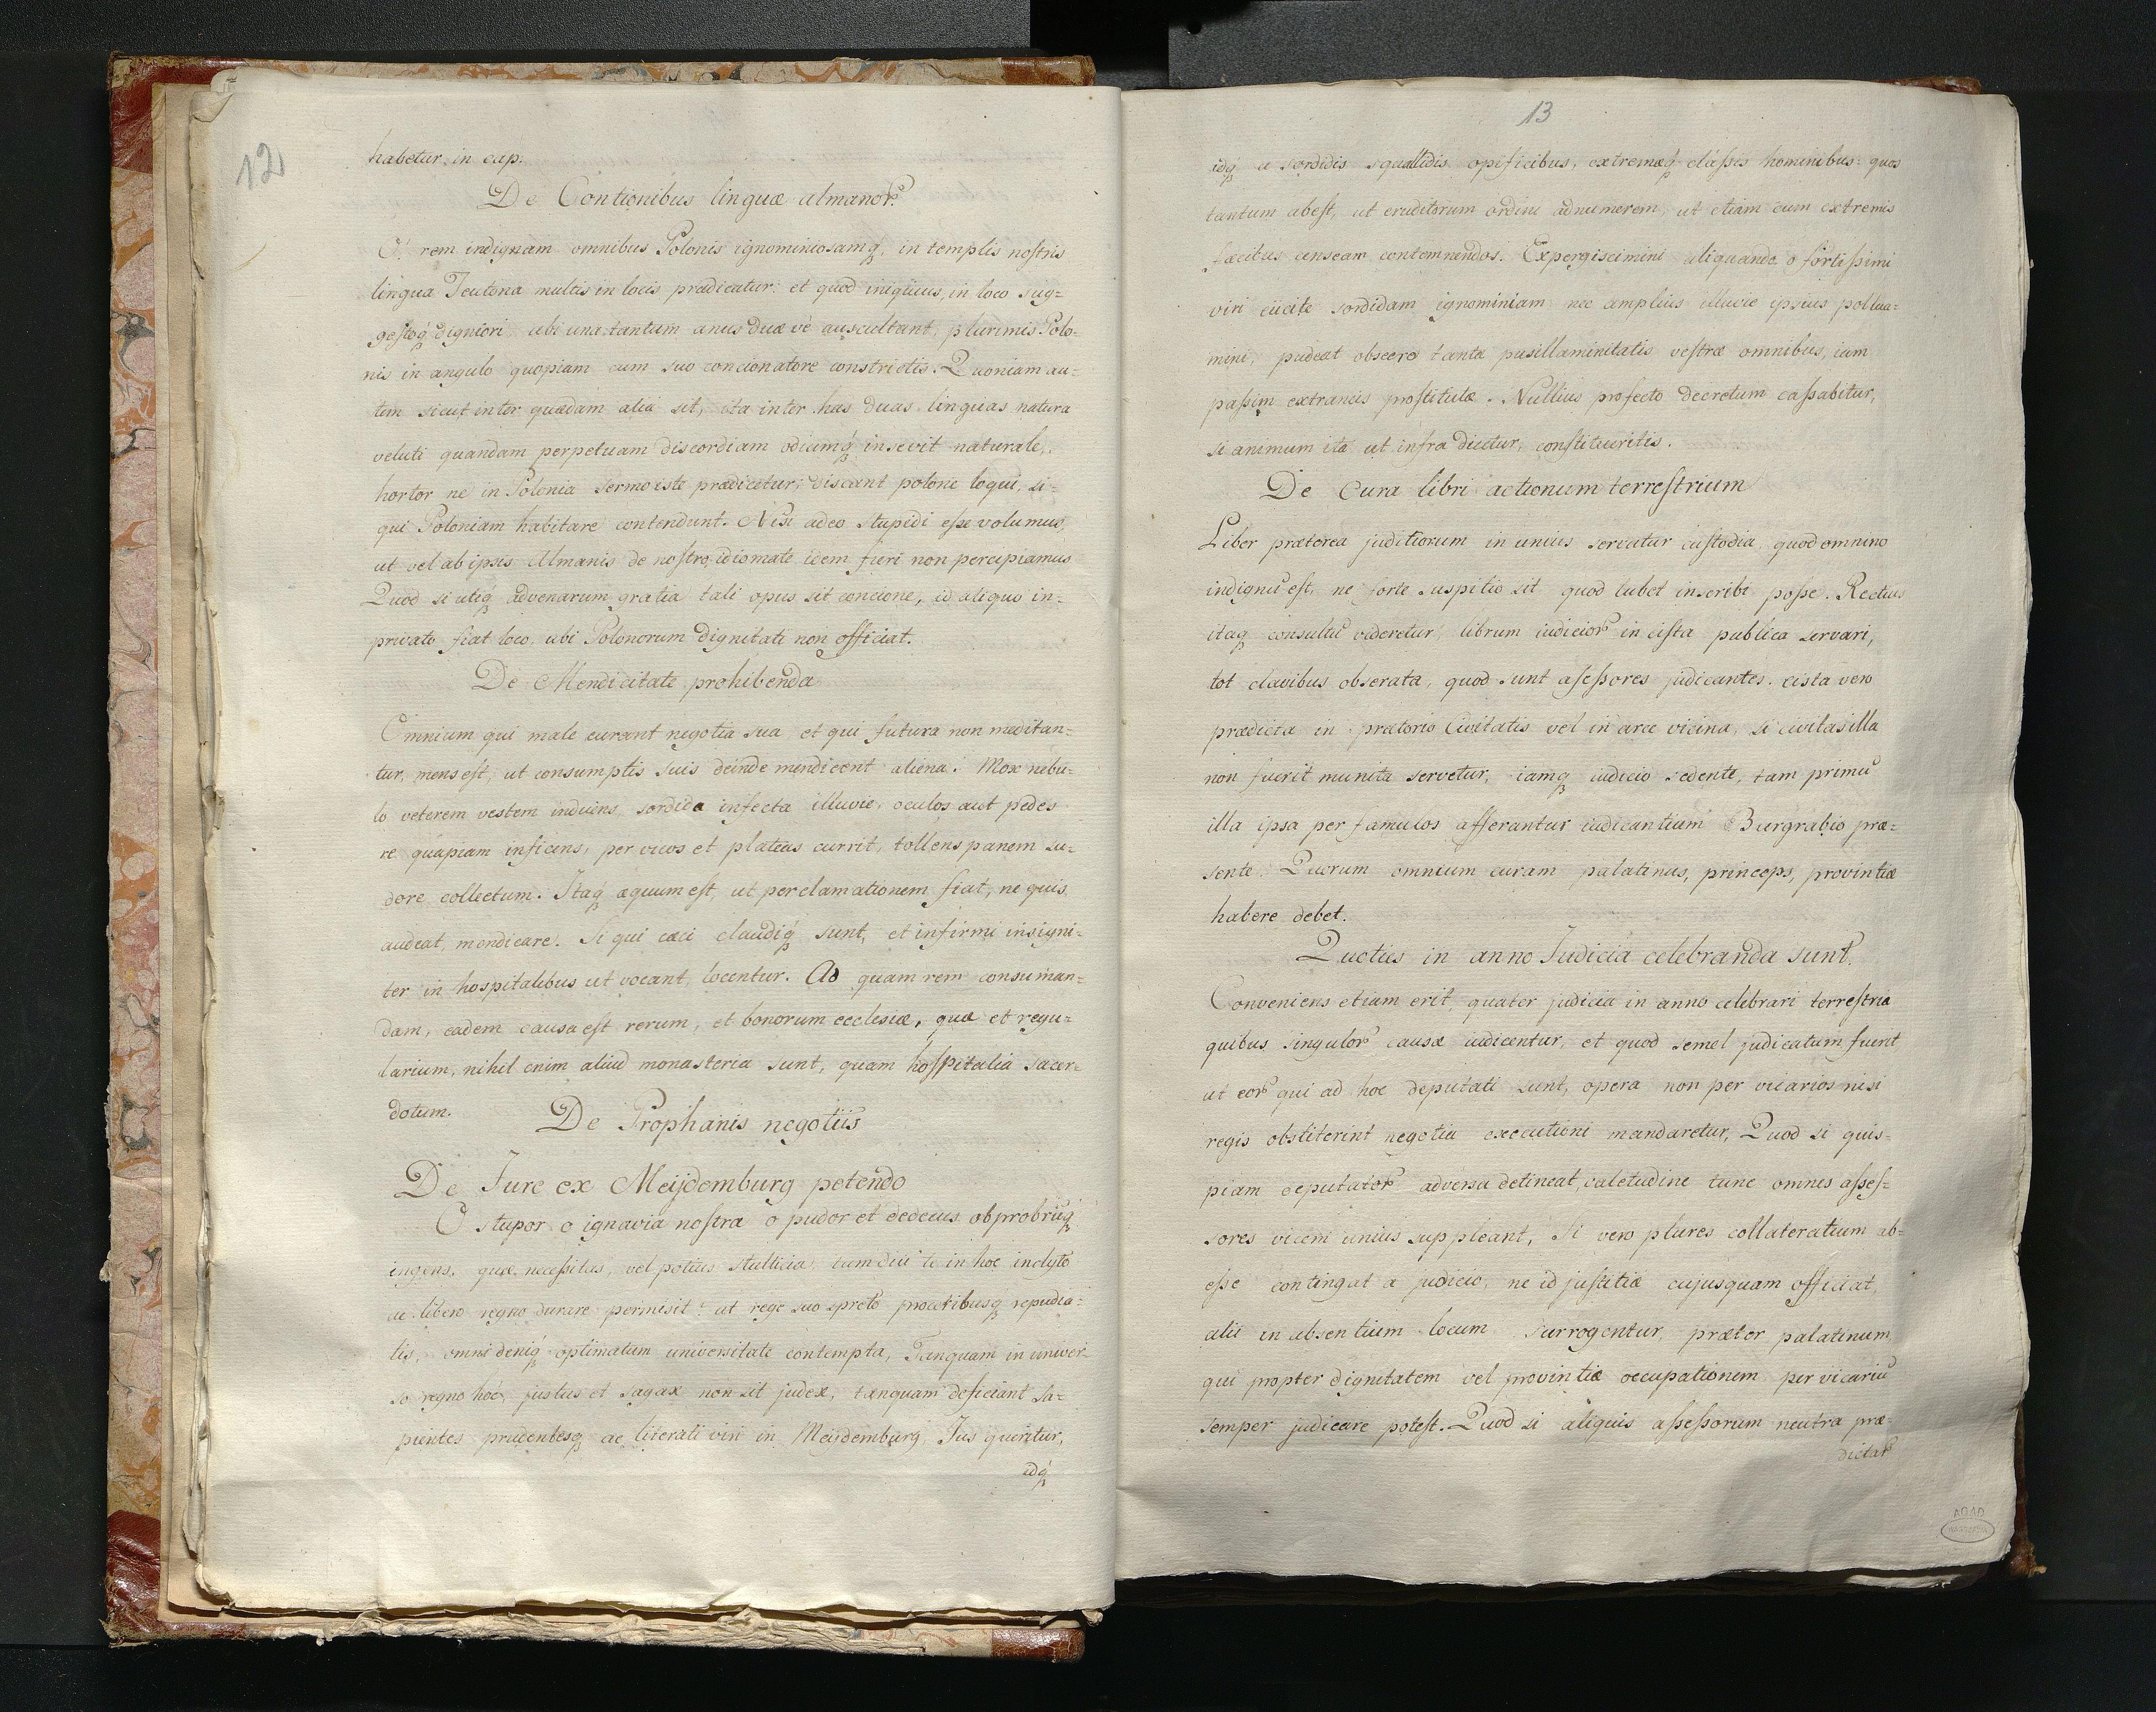 12
habetur in cap.
De Contionibus linguæ almanor
O! rem indignam omnibus Polonis ignominiosamq, in templis nostris
lingua Teutona multis in locis prædicatur: et quod iniquius, in loco sug=
gestoq digniori ubi una tantum anus duæ vè auscultant, plurimis Polo=
nis in angulo quopiam cum suo concionatore constrictis. Quoniam au=
tem sicut inter quædam alia sit, ita inter has duas linguas natura
veluti quandam perpetuam discordiam odiumq insevit naturale,
hortor ne in Polonia sermo iste prædicetur; discant polone loqui, si=
qui Poloniam habitare contendunt. Nisi adeo stupidi esse volumus,
ut vel ab ipsis Almanis de nostro idiomate idem fieri non percipiamus
Quod si utiq advenarum gratia tali opus sit concione, id aliquo in=
privato fiat loco ubi Polonorum dignitati non officiat.
De Mendicitate prohibenda
Omnium qui male curant negotia sua, et qui futura non meditan=
tur, mens est, ut consumptis suis deinde mendicent aliena. Mox nebu=
lo veterem vestem induens, sordida infecta illuvie, oculos aut pedes
re quapiam inficens, per vicos et plateas currit, tollens panem su=
dore collectum. Itaq æquum est, ut per clamationem fiat, ne quis
audeat mendicare. Si qui cæci claudiq sunt, et infirmi insigni=
ter in hospitalibus ut vocant, locentur. Ad quam rem consuman=
dam, eadem causa est rerum, et bonorum ecclesiæ, quæ et regu=
larium, nihil enim aliud monasteria sunt, quam hospitalia sacer=
dotum.
De Prophanis negotiis
De Jure ex Meijdemburg petendo
O stupor o ignavia nostra o pudor et dedecus obprobriuq
ingens, quæ necessitas, vel potius stulticia tamdiu te in hoc inclyto
ac libero regno durare permisit? ut rege suo spreto proceribusq repudia=
tis, omni deniq optimatum universitate contempta, Tanquam in univer=
so regno hoc, justus et sagax non sit judex, tanquam deficiant sa=
pientes prudentesq ac literati viri in Meijdemburg, Jus queritur,
idq
13
idq a sordidis squallidis opificibus, extremæq classes hominibus: quos
tantum abest, ut eruditorum ordini adnumerem, ut etiam cum extremis
fæcibus censeam contemnendos. Expergiscimini aliquando o fortissimi
viri eiicite sordidam ignominiam nec amplius illuvie ipsius pollua=
mini, pudeat obsecro tantæ pusillaminitatis vestræ omnibus, iam
passim extraneis prostitutæ. Nullius profecto decretum cassabitur,
si animum ita ut infra dicetur, constitueritis.
De Cura libri actionum terrestrium
Liber præterea juditiorum in unius servatur custodia, quod omnino
indignu est, ne forte suspitio sit quod lubet inscribi posse. Rectius
itaq consultu videretur, librum iudicior in cista publica servari,
tot clavibus obserata, quod sunt assessores judicantes. cista vero
prædicta in prætorio Civitatis vel in arce vicina, si civitas illa
non fuerit munita servetur, iamq iudicio sedente, tam primu
illa ipsa per famulos afferantur iudicantium Burgrabio præ=
sente. Quorum omnium curam palatinus, princeps, provintiæ
habere debet.
Quotius in anno Judicia celebranda sunt.
Conveniens etiam erit, quater judicia in anno celebrari terrestria
quibus singulor causæ iudicentur, et quod semel judicatum fuerit
ut eor qui ad hoc deputati sunt, opera non per vicarios nisi
regis obstiterint negotia executioni mandaretur, Quod si quis=
piam deputator adversa detineat, valetudine tunc omnes asses=
sores vicem unius suppleant, Si vero plures collateratium ab=
esse contingat a judicio, ne id justitiæ cujusquam officiat,
alii in absentium locum surrogentur, præter palatinum
qui propter dignitatem vel provintiæ occupationem per vicariu
semper judicare potest. Quod si aliquis assessorum neutra præ=
dictar
AGAD
WARSZAWA